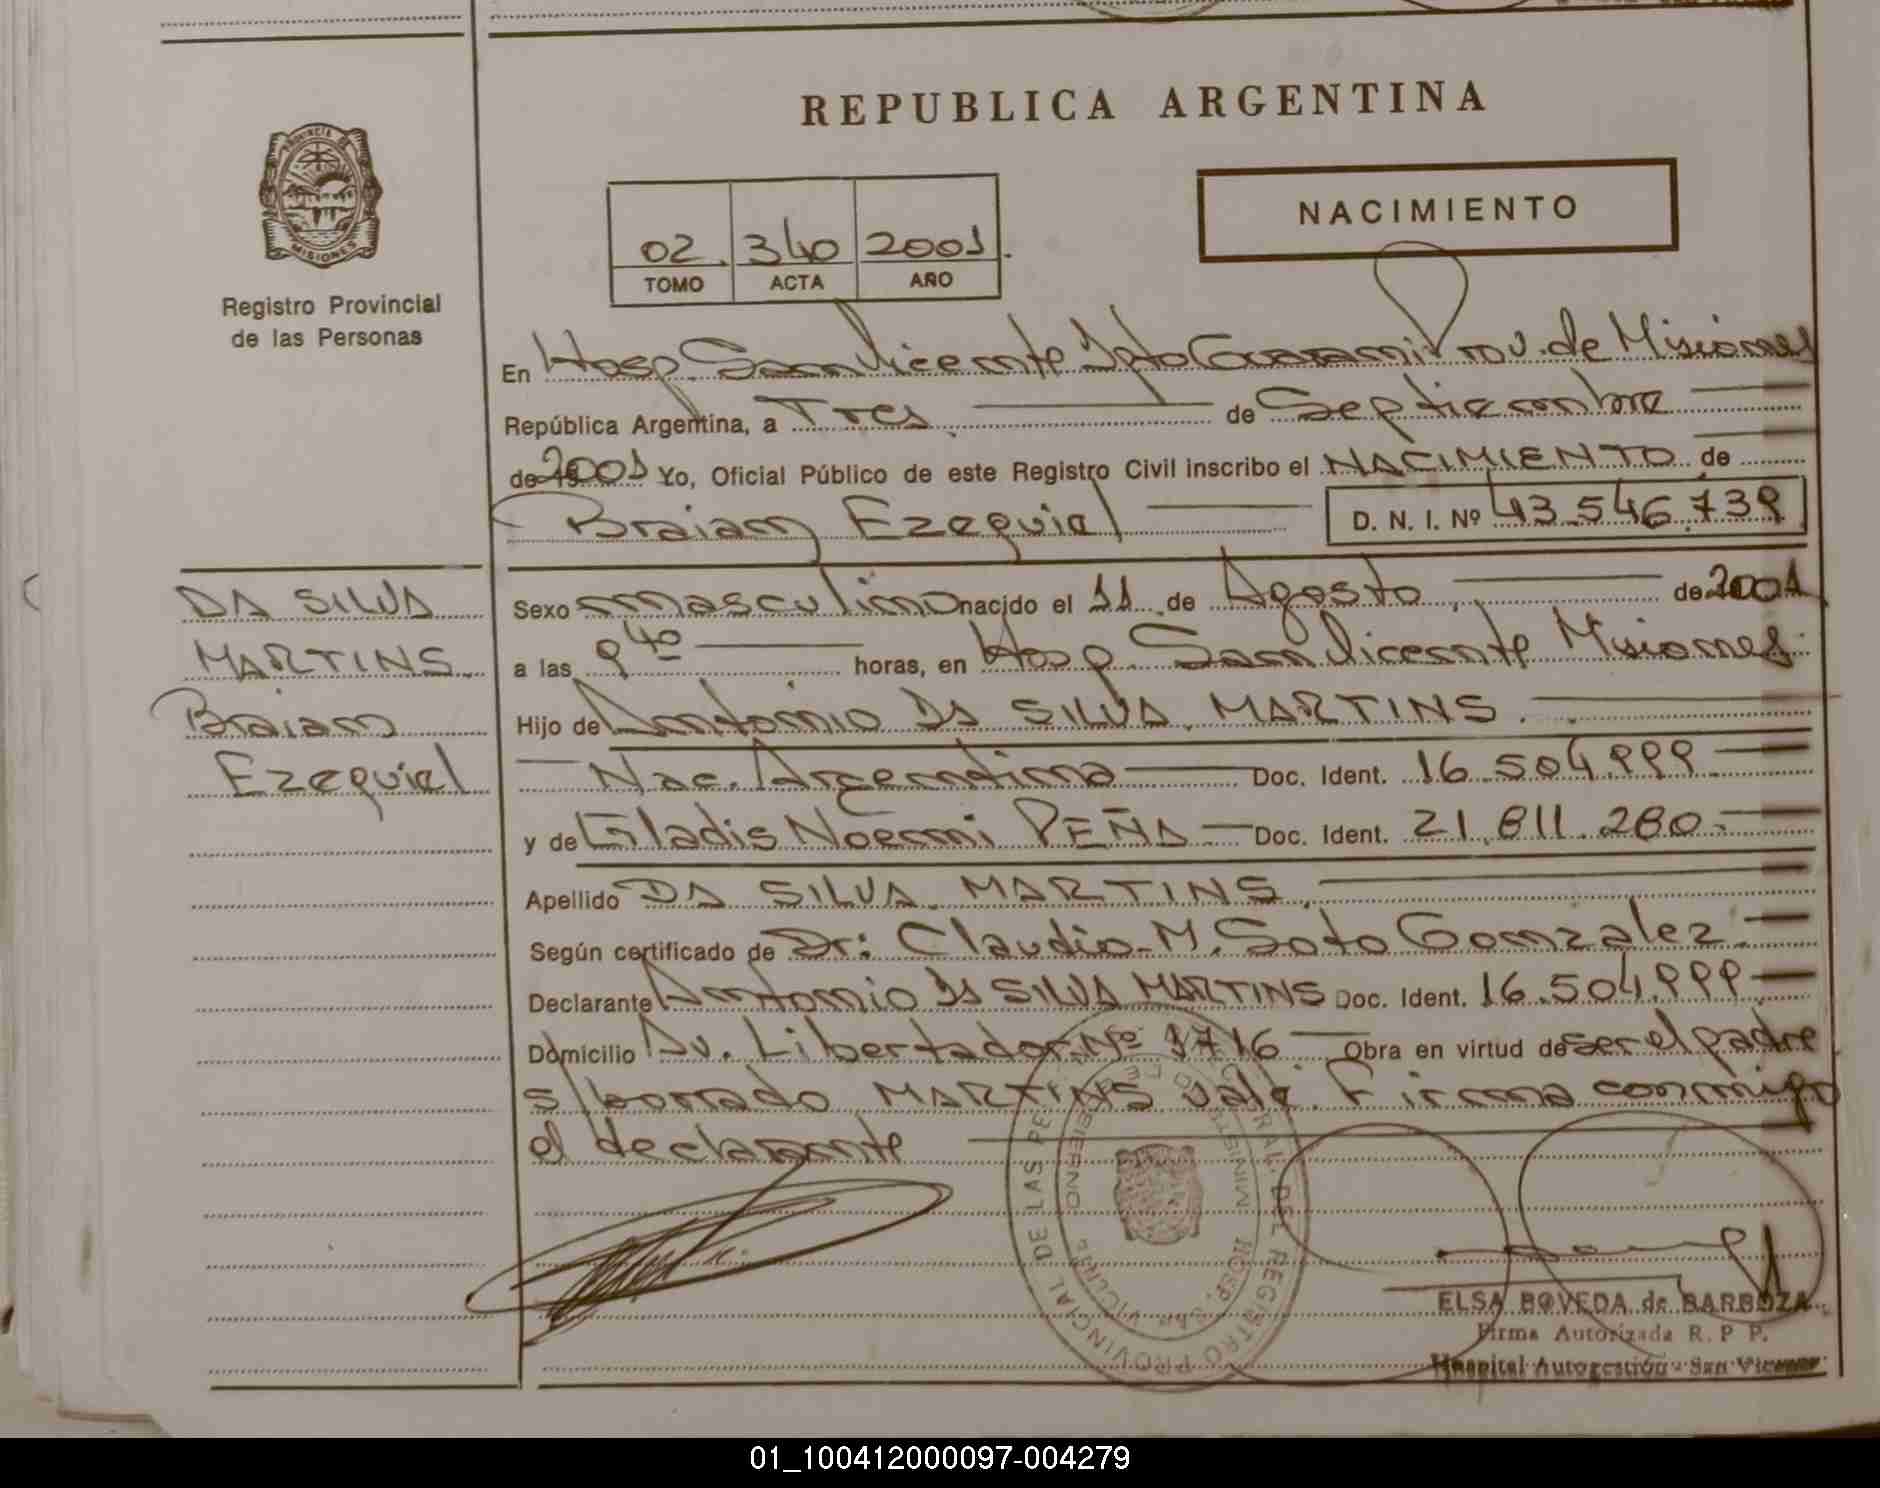 REPUBLICA ARGENTINA
PROVINCIA DE
MISIONES
Registro Provincial
de las Personas
NACIMIENTO
02. 340 2001.
TOMO ACTA AÑO
En Hosp. San Vicente Dpto Guarani Prov. de Misiones
República Argentina, a Tres de Septiembre
de 2001 Yo, Oficial Público de este Registro Civil inscribo el NACIMIENTO de
Braian Ezequiel D. N. I. Nº 43.546.739
DA SILVA
MARTINS
Braian
Ezequiel
Sexo masculino nacido el 11 de Agosto de 2001
a las 9 40 horas, en Hosp. San Vicente Misiones
Hijo de Antonio DA SILVA MARTINS
Nac. Argentina Doc. Ident. 16.504.999
y de Gladis Noemi PEÑA Doc. Ident. 21.811.280
Apellido DA SILVA MARTINS
Según certificado de Dr: Claudio M. Soto Gonzalez
Declarante Antonio DA SILVA MARTINS Doc. Ident. 16.504.999
Domicilio Av. Libertador Nº 1716 Obra en virtud de ser el padre
s/borrado MARTINS vale. Firma conmigo
el declarante
REGISTRO PROVINCIAL DE LAS PE
HOSP. SAN VICENTE
ELSA BOVEDA de BARBOZA
Firma Autorizada R. P P.
Hospital Autogestión - San Vicente
01_100412000097-004279